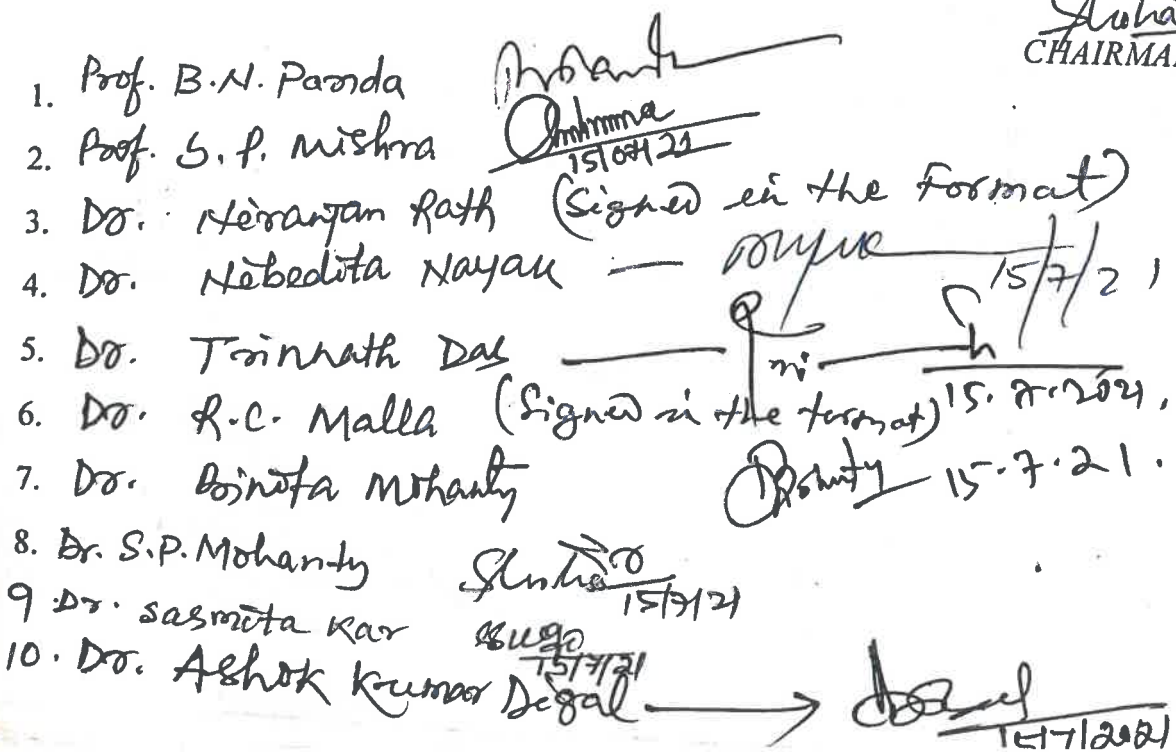 CHAIRMA
1. Prof. B.N. Panda
2. Prof. S.P. Mishra 15/07/21
3. Dr. Niranjan Rath (Signed in the Format)
4. Dr. Nibedita Nayak — 15/7/21
5. Dr. Trinnath Das 15.7.2021,
6. Dr. R.C. Malla (Signed in the format)
7. Dr. Binita Mohanty 15.7.21.
8. Dr. S.P. Mohanty 15/7/21
9 Dr. Sasmita Kar 15/7/21
10. Dr. Ashok Kumar Digal 15/7/2021